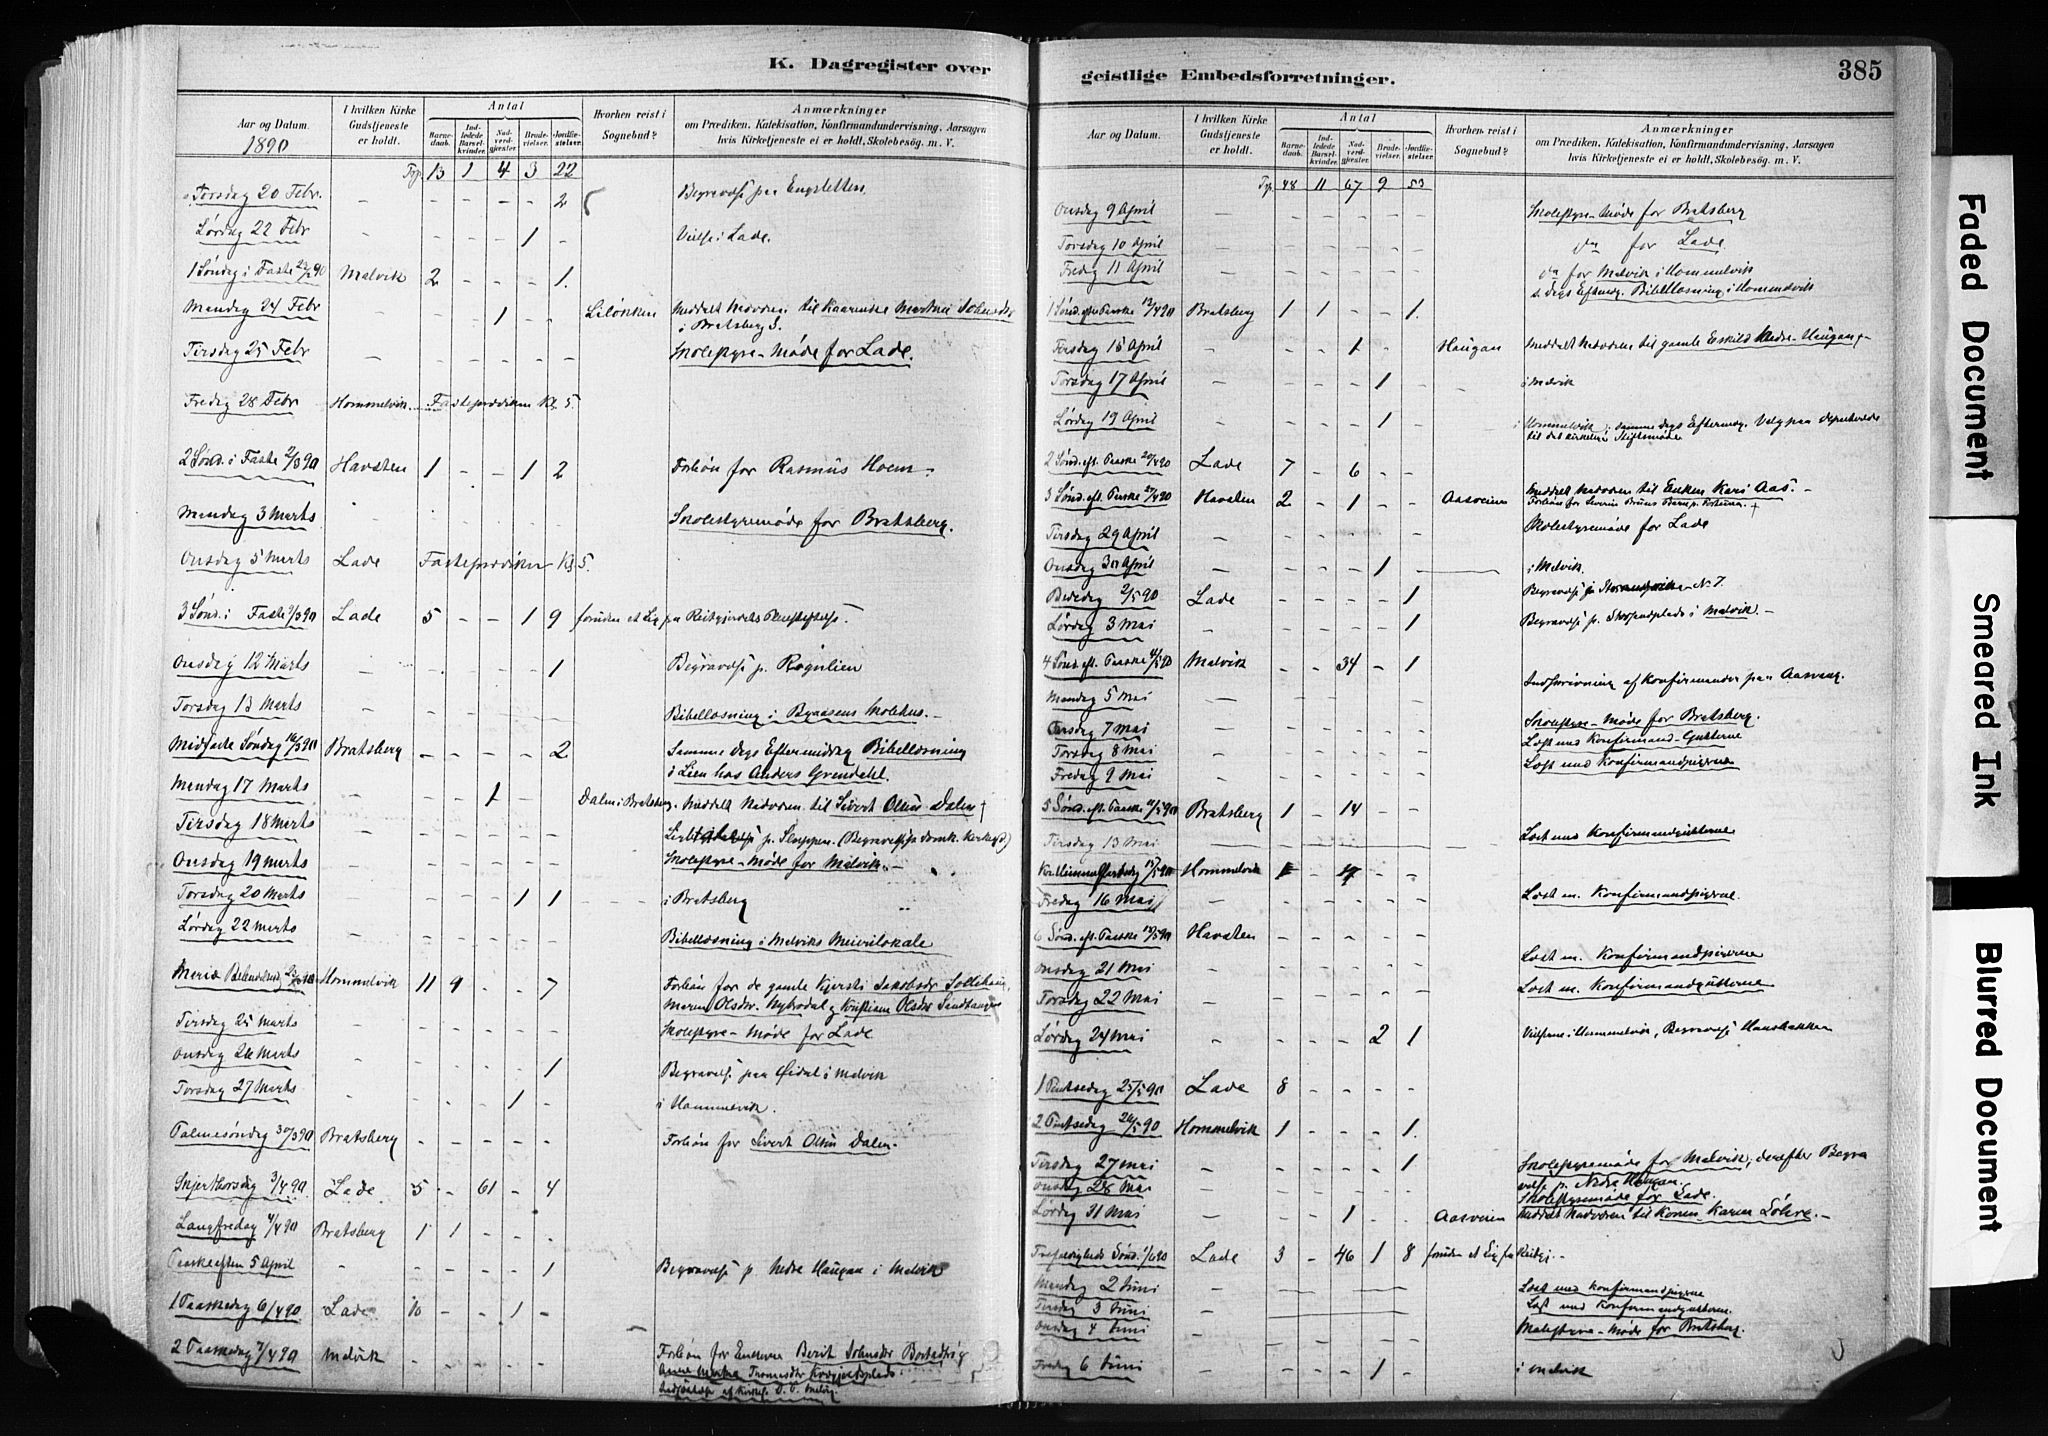 K. Dagregister over
Aar og Datum.
1890
I hvilken Kirke Gudstjeneste er holdt.
Antal
Barnedaab.
Indledede Barselkvinder.
Nadverdgjæster.
Brudevielser.
Jordfæstelser.
Hvorhen reist i Sognebud?
Anmærkninger
om Prædiken, Katekisation, Konfirmandundervisning, Aarsagen
hvis Kirketjeneste ei er holdt, Skolebesøg m. V.
13 1 4 3 22
Torsdag 20 Febr. - - - - - 2 Begravelse paa Engsletten.
Lørdag 22 Febr - - - - 1 - Vielse i Lade.
1 Søndag i Faste 23/2 90 Malvik 2 - - - 1.
Mandag 24 Febr - - - 1 - - Meddelt Nadveren til
i Bratsberg S.
Tirsdag 25 Febr - - - - - - Skolestyre-Møde for Lade.
Fredag 28 Febr Hommelvik. Fasteprædiken Kl. 5.
2 Sønd. i Faste 2/3 90 Havsten 1 - - 1 2 Forbøn for Rasmus Hoem -
Mandag 3 Marts - - - - - - Skolestyremøde for Bratsberg.
Onsdag 5 Marts Lade Fasteprædiken Kl. 5.
3 Sønd. i Faste 9/3 90 Lade 5 - - 1 9 foruden et Lig paa
Onsdag 12 Marts - - - - - 1 Begravelse p.
Torsdag 13 Marts - - - - - - Bibellæsning i Byaasens Skolehus. -
Midfaste Søndag 16/3 90 Bratsberg - - - - 2 Samme Dags Eftermiddag Bibellæsning
i Lien hos Anders Grendahl.
Mandag 17 Marts - - - 1 - - Dalen i Bratsberg. Meddelt Nadveren til Sivert Olsen Dalen
Tirsdag 18 Marts - - - - - - p. Sluppen. (Begravelse paa Domk. Kirkegd.)
Onsdag 19 Marts - - - - - - Skolestyre-Møde for Malvik. -
Torsdag 20 Marts - - - - 1 1 i Bratsberg
Lørdag 22 Marts - - - - - - Bibellæsning i Malviks Meierilokale
Mariæ Bebudelsesd. 23/3 90 Hommelvik 11 9 - - 7 Forbøn for de gamle Kjersti Jakobsdr
Maren Olsdr. og Kristiane Olsdr
Tirsdag 25 Marts - - - - - - Skolestyre-Møde for Lade
Onsdag 26 Marts - - - - - 1 Begravelse paa Øidal i Malvik
Torsdag 27 Marts - - - - 1 - i Hommelvik.
Palmesøndag 30/3 90 Bratsberg - - - - - Forbøn for Sivert Olsen Dalen -
Skjærthorsdag 3/4 90 Lade 5 - 61 - 4
Langfredag 4/4 90 Bratsberg 1 1 - - -
Paaskeaften 5 April - - - - - 1 Begravelse p. Nedre Haugan i Malvik
1 Paaskedag 6/4 90 Lade 10 - - 1 -
2 Paaskedag 7/4 90 Malvik - - - - - Forbøn for Berit Johnsdr
geistlige Embedsforretninger.
385
Aar og Datum.
I hvilken Kirke Gudstjeneste er holdt.
Antal
Barnedaab.
Indledede Barselkvinder.
Nadverdgjæster.
Brudevielser.
Jordfæstelser.
Hvorhen reist i Sognebud?
Anmærkninger
om Prædiken, Katekisation, Konfirmandundervisning, Aarsagen
hvis Kirketjeneste ei er holdt, Skolebesøg m. V.
48 11 67 9 53
Onsdag 9 April - - - - - - Skolestyre-Møde for Bratsberg
Torsdag 10 April - - - - - - do for Lade
Fredag 11 April - - - - - - do for Malvik i Hommelvik
s. Dags Eftermdg. Bibellæsning i Hommelvik
1 Sønd. efter Paaske 13/4 90 Bratsberg 1 1 - - 1.
Tirsdag 15 April - - - 1 - - Haugan Meddelt Nadveren til gamle Eskild Nedre-Haugan -
Torsdag 17 April - - - - 1 - - i Malvik
Lørdag 19 April - - - - 1 - i Hommelvik; samme Dags Eftermdg. Valg paa
2 Sønd. eft. Paaske 20/4 90 Lade 7 - 6 - -
3 Sønd. eft. Paaske 27/4 90 Havsten 2 - 1 - - Aasveien Meddelt Nadveren til Enken Kari Aas. -
Tirsdag 29 April - - - - - - Skolestyremøde for Lade
Onsdag 30 April - - - - 1 - i Malvik.
Bededag 2/5 90 Lade - - - - 1 Begravelse p. N. 7.
Lørdag 3 Mai - - - - - 1 Begravelse p. i Malvik -
4 Sønd. eft. Paaske 4/5 90 Malvik - - 34 - 1
Mandag 5 Mai - - - - - - Indskrivning af Konfirmander paa Aasvang.
Onsdag 7 Mai - - - - - - Skolestyre-Møde for Bratsberg.
Torsdag 8 Mai - - - - - - Læst med Konfirmand-Gutterne
Fredag 9 Mai - - - - - - Læst med Konfirmandpigerne
5 Sønd. eft. Paaske 11/5 90 Bratsberg 1 - 14 - -
Tirsdag 13 Mai - - - - - - Læst med Konfirmandgutterne
Kr. Himmelfartsdag 15/5 90 Hommelvik
Fredag 16 Mai - - - - - - Læst m. Konfirmandpigerne.
6 Sønd. eft. Paaske 18/5 90 Havsten - - - - -
Onsdag 21 Mai - - - - - - Læst m. Konfirmandpigerne
Torsdag 22 Mai - - - - - - Læst m. Konfirmandgutterne
Lørdag 24 Mai - - - - 2 1 Vielserne i Hommelvik, Begravelse
1 Pintsedag 25/5 90 Lade 8 - - - -
2 Pintsedag 26/5 90 Hommelvik 1 - - - 1.
Tirsdag 27 Mai - - - - - 1 Skolestyremøde for Malvik; derefter Begra
velse p. Nedre Haugan.
Onsdag 28 Mai - - - - - - Skolestyremøde for Lade.
Lørdag 31 Mai - - - 1 - - Aasveien Meddelt Nadveren til Konen Karen Løhre. -
Trefoldigheds Sønd. 1/6 90 Lade 3 - 46 1 8 foruden et Lig fra
Mandag 2 Juni - - - - - - Læst med Konfirmandpigerne
Tirsdag 3 Juni - - - - - - Læst med Konfirmandgutterne.
Onsdag 4 Juni - - - - - - Skolestyre-Møde for Bratsberg.
Fredag 6 Juni - - - - 1 - i Malvik
Faded Document
Smeared Ink
Blurred Document